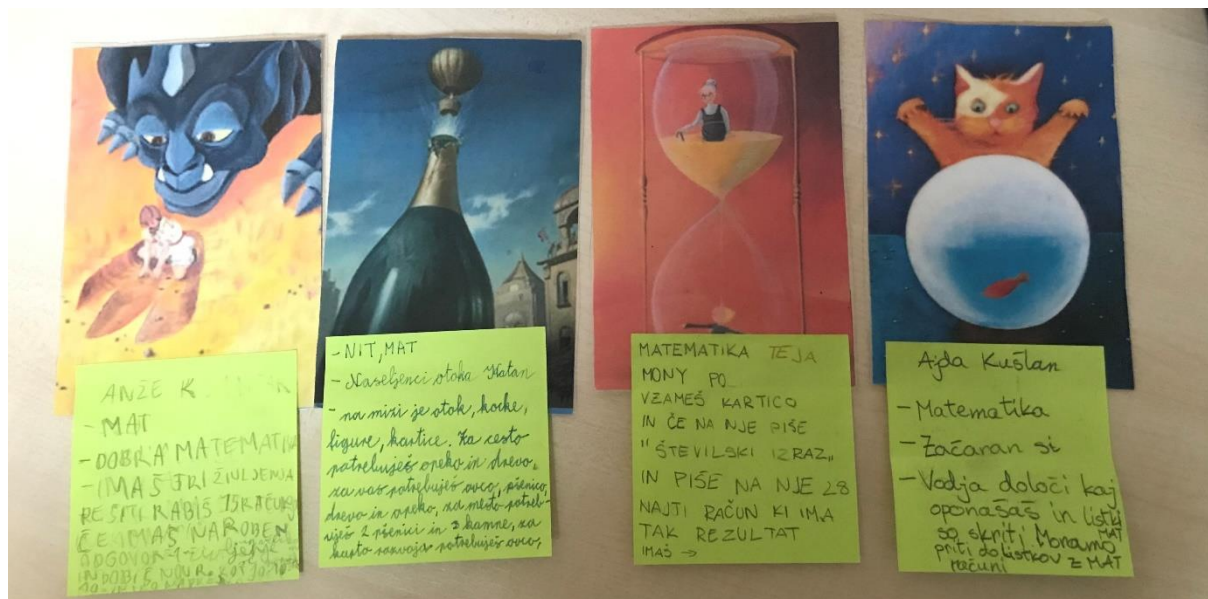 ANŽE K
- MAT
- DOBRA MATEMATIKA
- IMAŠ TRI ŽIVLJENJA
REŠITI RABIŠ 15 RAČUNOV
ČE IMAŠ NAROBEN
ODGOVOR
IN DOBIŠ NOV
- NIT, MAT
- Naseljenci otoka Katan
- na mizi je otok, kocke,
figure, kartice. Za cesto
potrebuješ opeko in drevo,
za vas potrebuješ ovco, pšenico,
drevo in opeko, za mesto potreb-
uješ 2 pšenici in 3 kamne, za
karto razvoja potrebuješ ovco,
MATEMATIKA TEJA
MONY PO
VZAMEŠ KARTICO
IN ČE NA NJE PIŠE
"ŠTEVILSKI IZRAZ„
IN PIŠE NA NJE 28
NAJTI RAČUN KI IMA
TAK REZULTAT
IMAŠ →
Ajda Kuštan
- Matematika
- Začaran si
- Vodja določi kaj
oponašaš in listki MAT
so skriti. Moramo
priti do listkov z MAT
računi